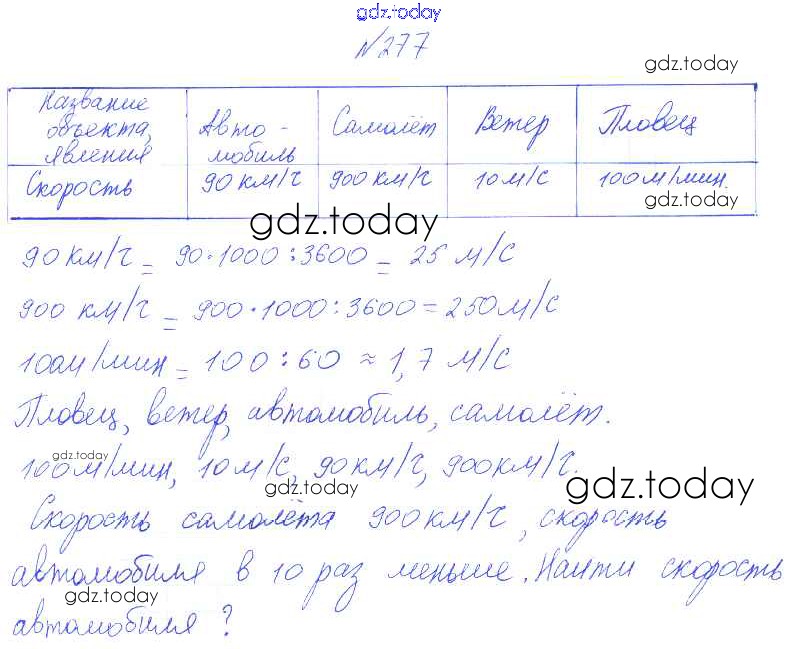 gdz.today
№277
gdz.today
Название объекта, явления | Авто-мобиль | Самолёт | Ветер | Пловец
Скорость | 90 км/ч | 900 км/ч | 10 м/с | 100 м/мин.
gdz.today
gdz.today
90 км/ч = 90·1000:3600 = 25 м/с
900 км/ч = 900·1000:3600 = 250 м/с
100м/мин = 100:60 ≈ 1,7 м/с
Пловец, ветер, автомобиль, самолёт.
gdz.today
100м/мин, 10 м/с, 90км/ч, 900км/ч.
gdz.today
gdz.today
Скорость самолёта 900 км/ч, скорость
автомобиля в 10 раз меньше. Найти скорость
gdz.today
автомобиля?